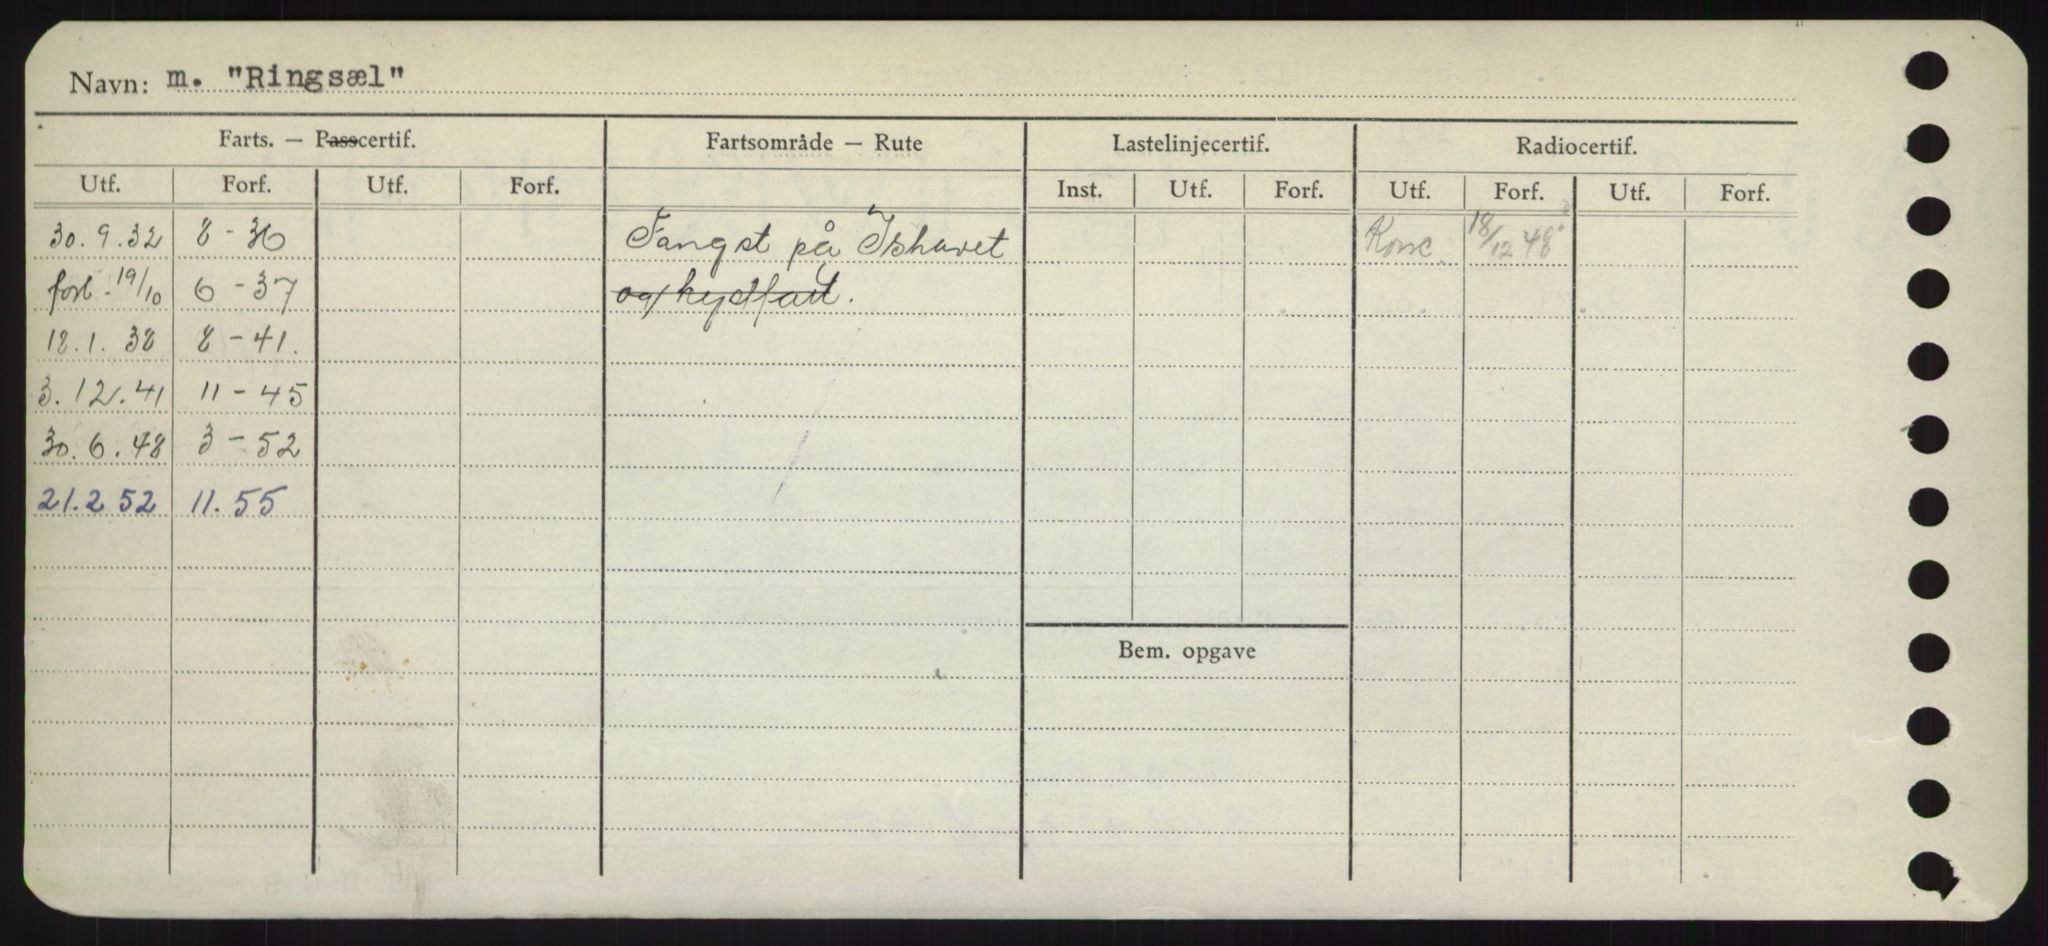 Navn: m. "Ringsæl"
Farts. — Passcertif. Fartsområde — Rute Lastelinjecertif. Radiocertif.
Utf. Forf. Utf. Forf. Inst. Utf. Forf. Utf. Forf. Utf. Forf.
30.9.32 8-36 Fangst på Ishavet Konc. 18/12 48
forl. 19/10 6-37 og kystfart.
18.1.38 8-41.
3.12.41 11-45
30.6.48 3-52
21.2 52 11.55
Bem. opgave